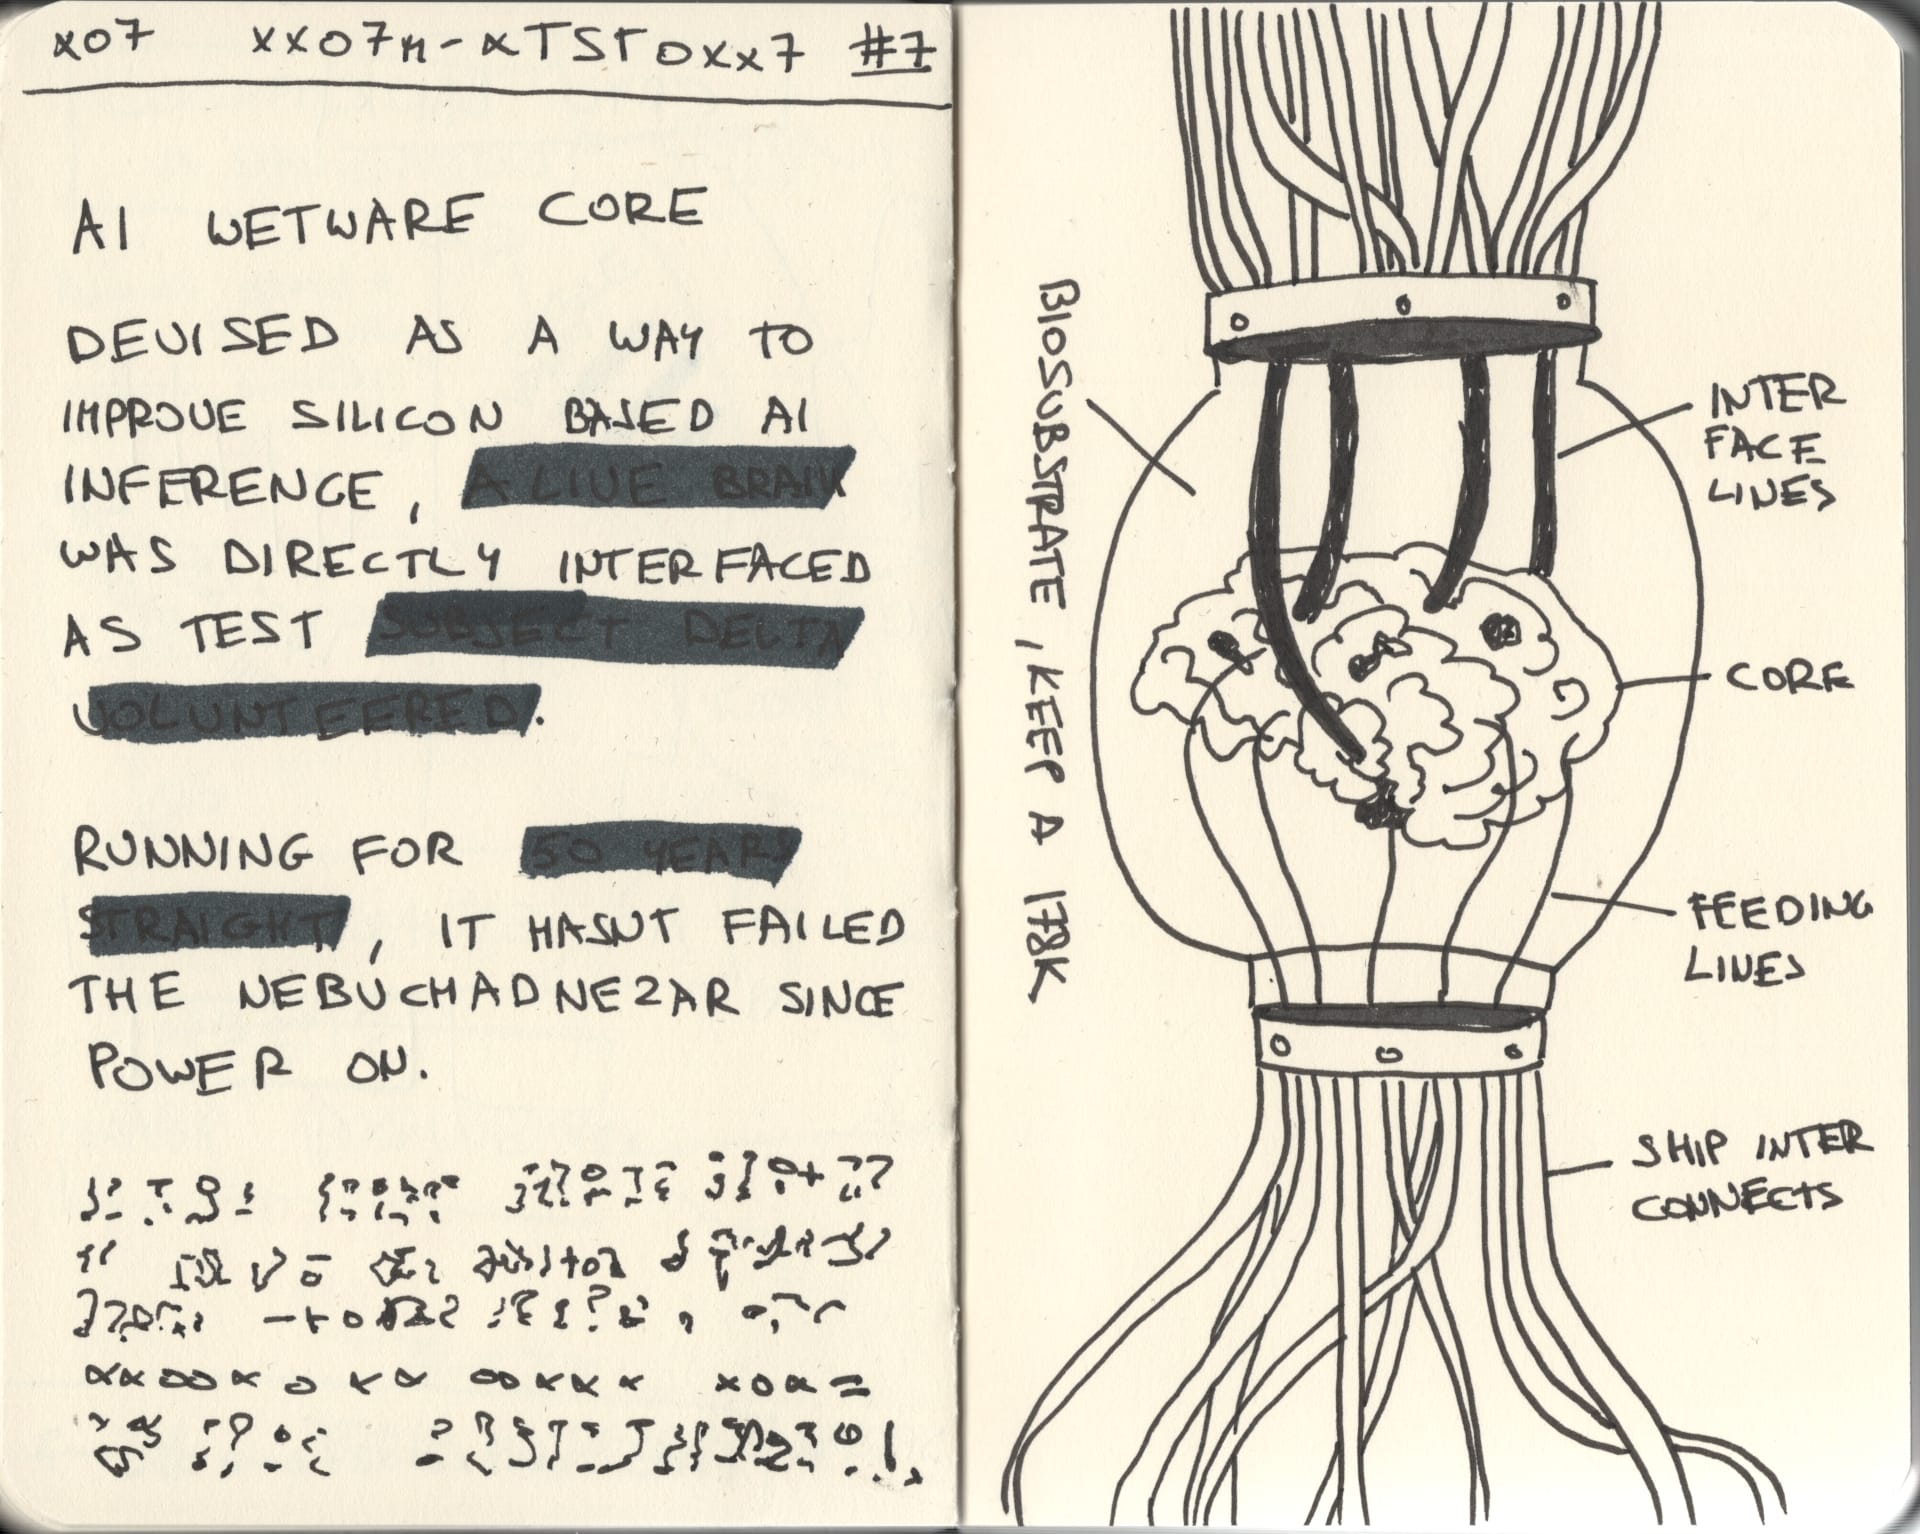 x07 xx07n-xTSTOxx7 #7
AI WETWARE CORE
DEVISED AS A WAY TO
IMPROVE SILICON BASED AI
INFERENCE, A LIVE BRAIN
WAS DIRECTLY INTERFACED
AS TEST SUBJECT DELTA
VOLUNTEERED.
RUNNING FOR 50 YEARS
STRAIGHT, IT HASNT FAILED
THE NEBUCHADNEZAR SINCE
POWER ON.
BIOSUBSTRATE, KEEP A 178K
INTER
FACE
LINES
CORE
FEEDING
LINES
SHIP INTER
CONNECTS